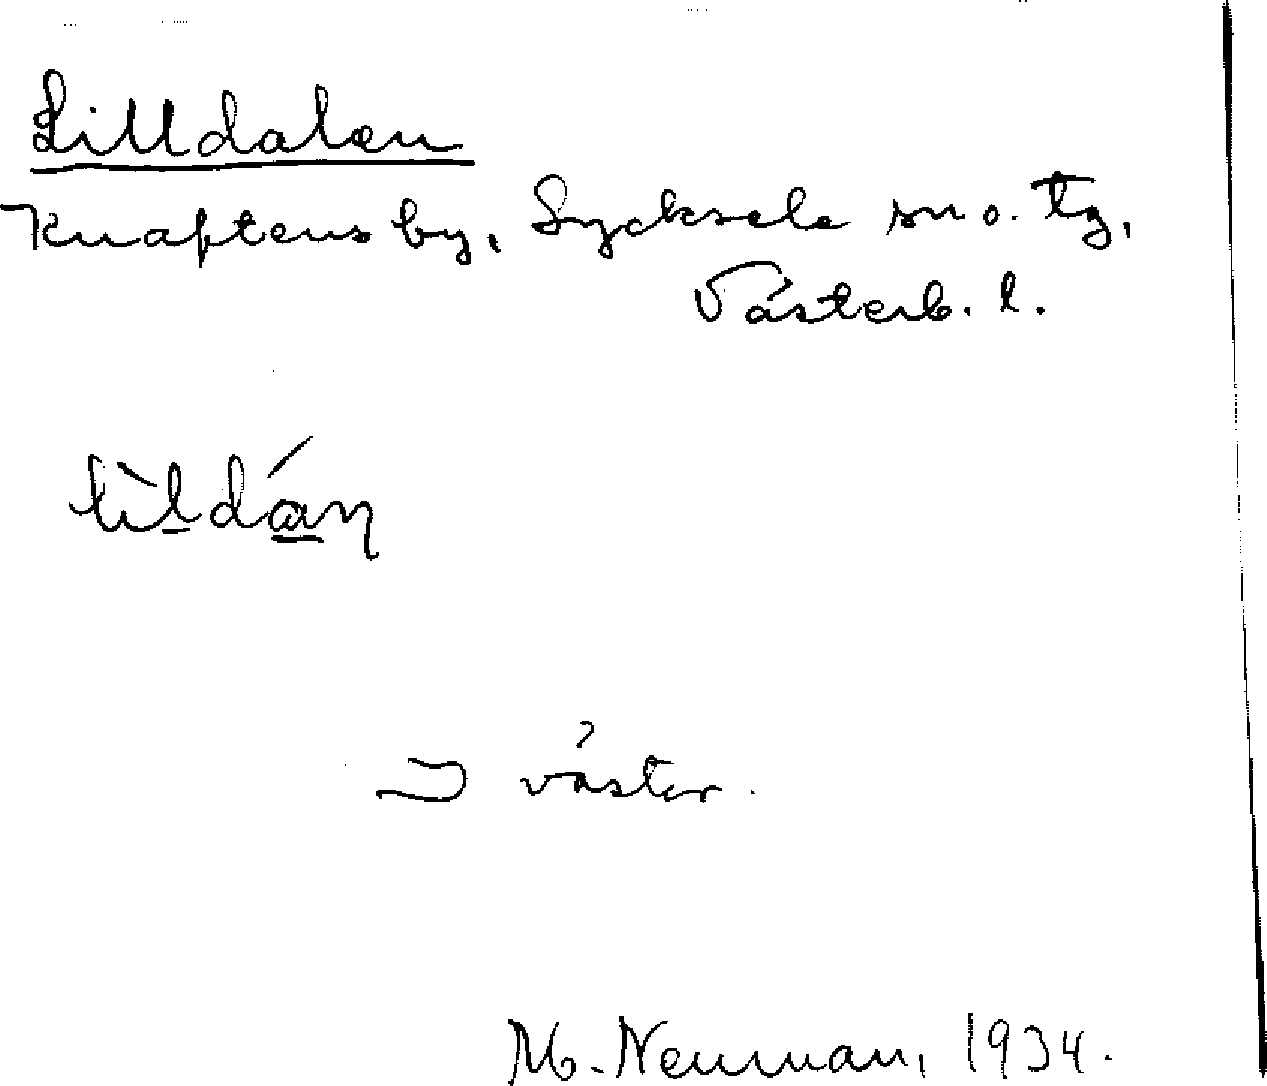 Lilldalen
Knaftens by, Lycksele sn o. tg,
Västerb. l.
lìldán
⊃ väster.
M. Neuman, 1934.